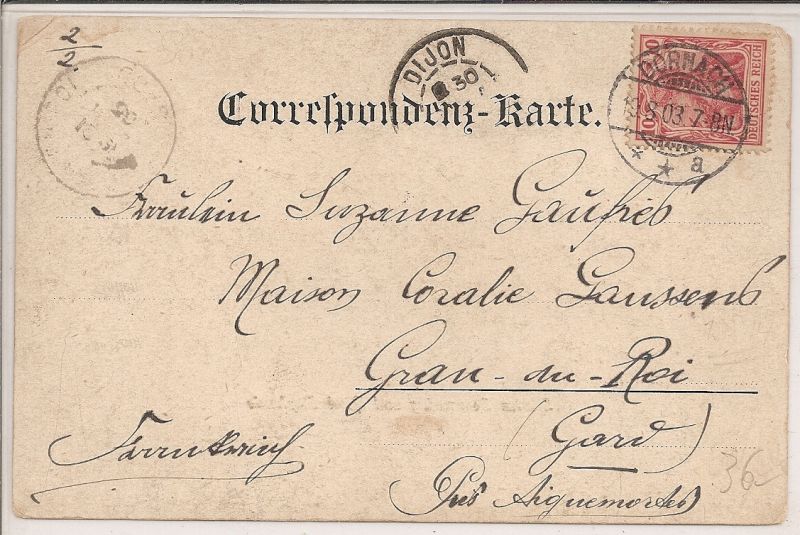 2/2
DIJON
30
10
10
DEUTSCHES REICH
DORNACH
8.03.7-8N
* * a
Correspondenz-Karte.
Fräulein Suzanne Gaufrès
Maison Coralie Gaussens
Grau-du-Roi
(Gard)
Frankreich
Près Aiguemortes)
36-